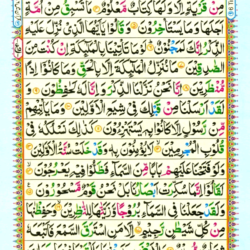 مِنْ قَرْيَةٍ اِلَّا وَلَهَا كِتَابٌ مَّعْلُوْمٌ ۝ مَا تَسْبِقُ مِنْ اُمَّةٍ
اَجَلَهَا وَمَا يَسْتَاْخِرُوْنَ ۝ وَقَالُوْا يٰۤاَيُّهَا الَّذِيْ نُزِّلَ عَلَيْهِ
الذِّكْرُ اِنَّكَ لَمَجْنُوْنٌ ۝ لَوْ مَا تَاْتِيْنَا بِالْمَلٰٓئِكَةِ اِنْ كُنْتَ مِنَ
الصّٰدِقِيْنَ ۝ مَا نُنَزِّلُ الْمَلٰٓئِكَةَ اِلَّا بِالْحَقِّ وَمَا كَانُوْۤا اِذًا
مُّنْظَرِيْنَ ۝ اِنَّا نَحْنُ نَزَّلْنَا الذِّكْرَ وَاِنَّا لَهٗ لَحٰفِظُوْنَ ۝ وَ
لَقَدْ اَرْسَلْنَا مِنْ قَبْلِكَ فِيْ شِيَعِ الْاَوَّلِيْنَ ۝ وَمَا يَاْتِيْهِمْ
مِّنْ رَّسُوْلٍ اِلَّا كَانُوْا بِهٖ يَسْتَهْزِءُوْنَ ۝ كَذٰلِكَ نَسْلُكُهٗ فِيْ
قُلُوْبِ الْمُجْرِمِيْنَ ۝ لَا يُؤْمِنُوْنَ بِهٖ وَقَدْ خَلَتْ سُنَّةُ الْاَوَّلِيْنَ ۝
وَلَوْ فَتَحْنَا عَلَيْهِمْ بَابًا مِّنَ السَّمَآءِ فَظَلُّوْا فِيْهِ يَعْرُجُوْنَ ۝
لَقَالُوْۤا اِنَّمَا سُكِّرَتْ اَبْصَارُنَا بَلْ نَحْنُ قَوْمٌ مَّسْحُوْرُوْنَ ۝
وَلَقَدْ جَعَلْنَا فِي السَّمَآءِ بُرُوْجًا وَّزَيَّنّٰهَا لِلنّٰظِرِيْنَ ۝ وَحَفِظْنٰهَا
مِنْ كُلِّ شَيْطٰنٍ رَّجِيْمٍ ۝ اِلَّا مَنِ اسْتَرَقَ السَّمْعَ فَاَتْبَعَهٗ